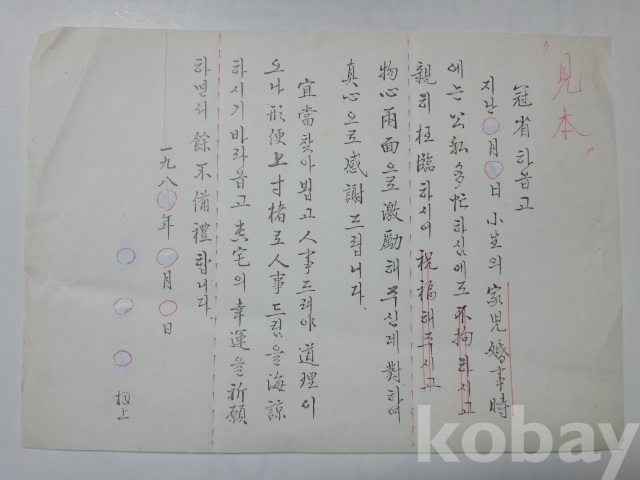 "見本"
冠省하옵고
지난 ○月 ○日 小生의 家兒婚事時
에는 公私多忙하심에도 不拘하시고
親히 枉臨하시여 祝福해주시고
物心兩面으로 激勵해주심에 對하여
真心으로 感謝드립니다.
宜當찾아뵙고 人事드려야 道理이
오나 形便上 寸楮로 人事드림을 海諒
하시기 바라옵고 貴宅의 幸運을 祈願
하면서 餘不備禮합니다.
一九八○年 ○月 ○日
○ ○ ○ 拜上
kobay